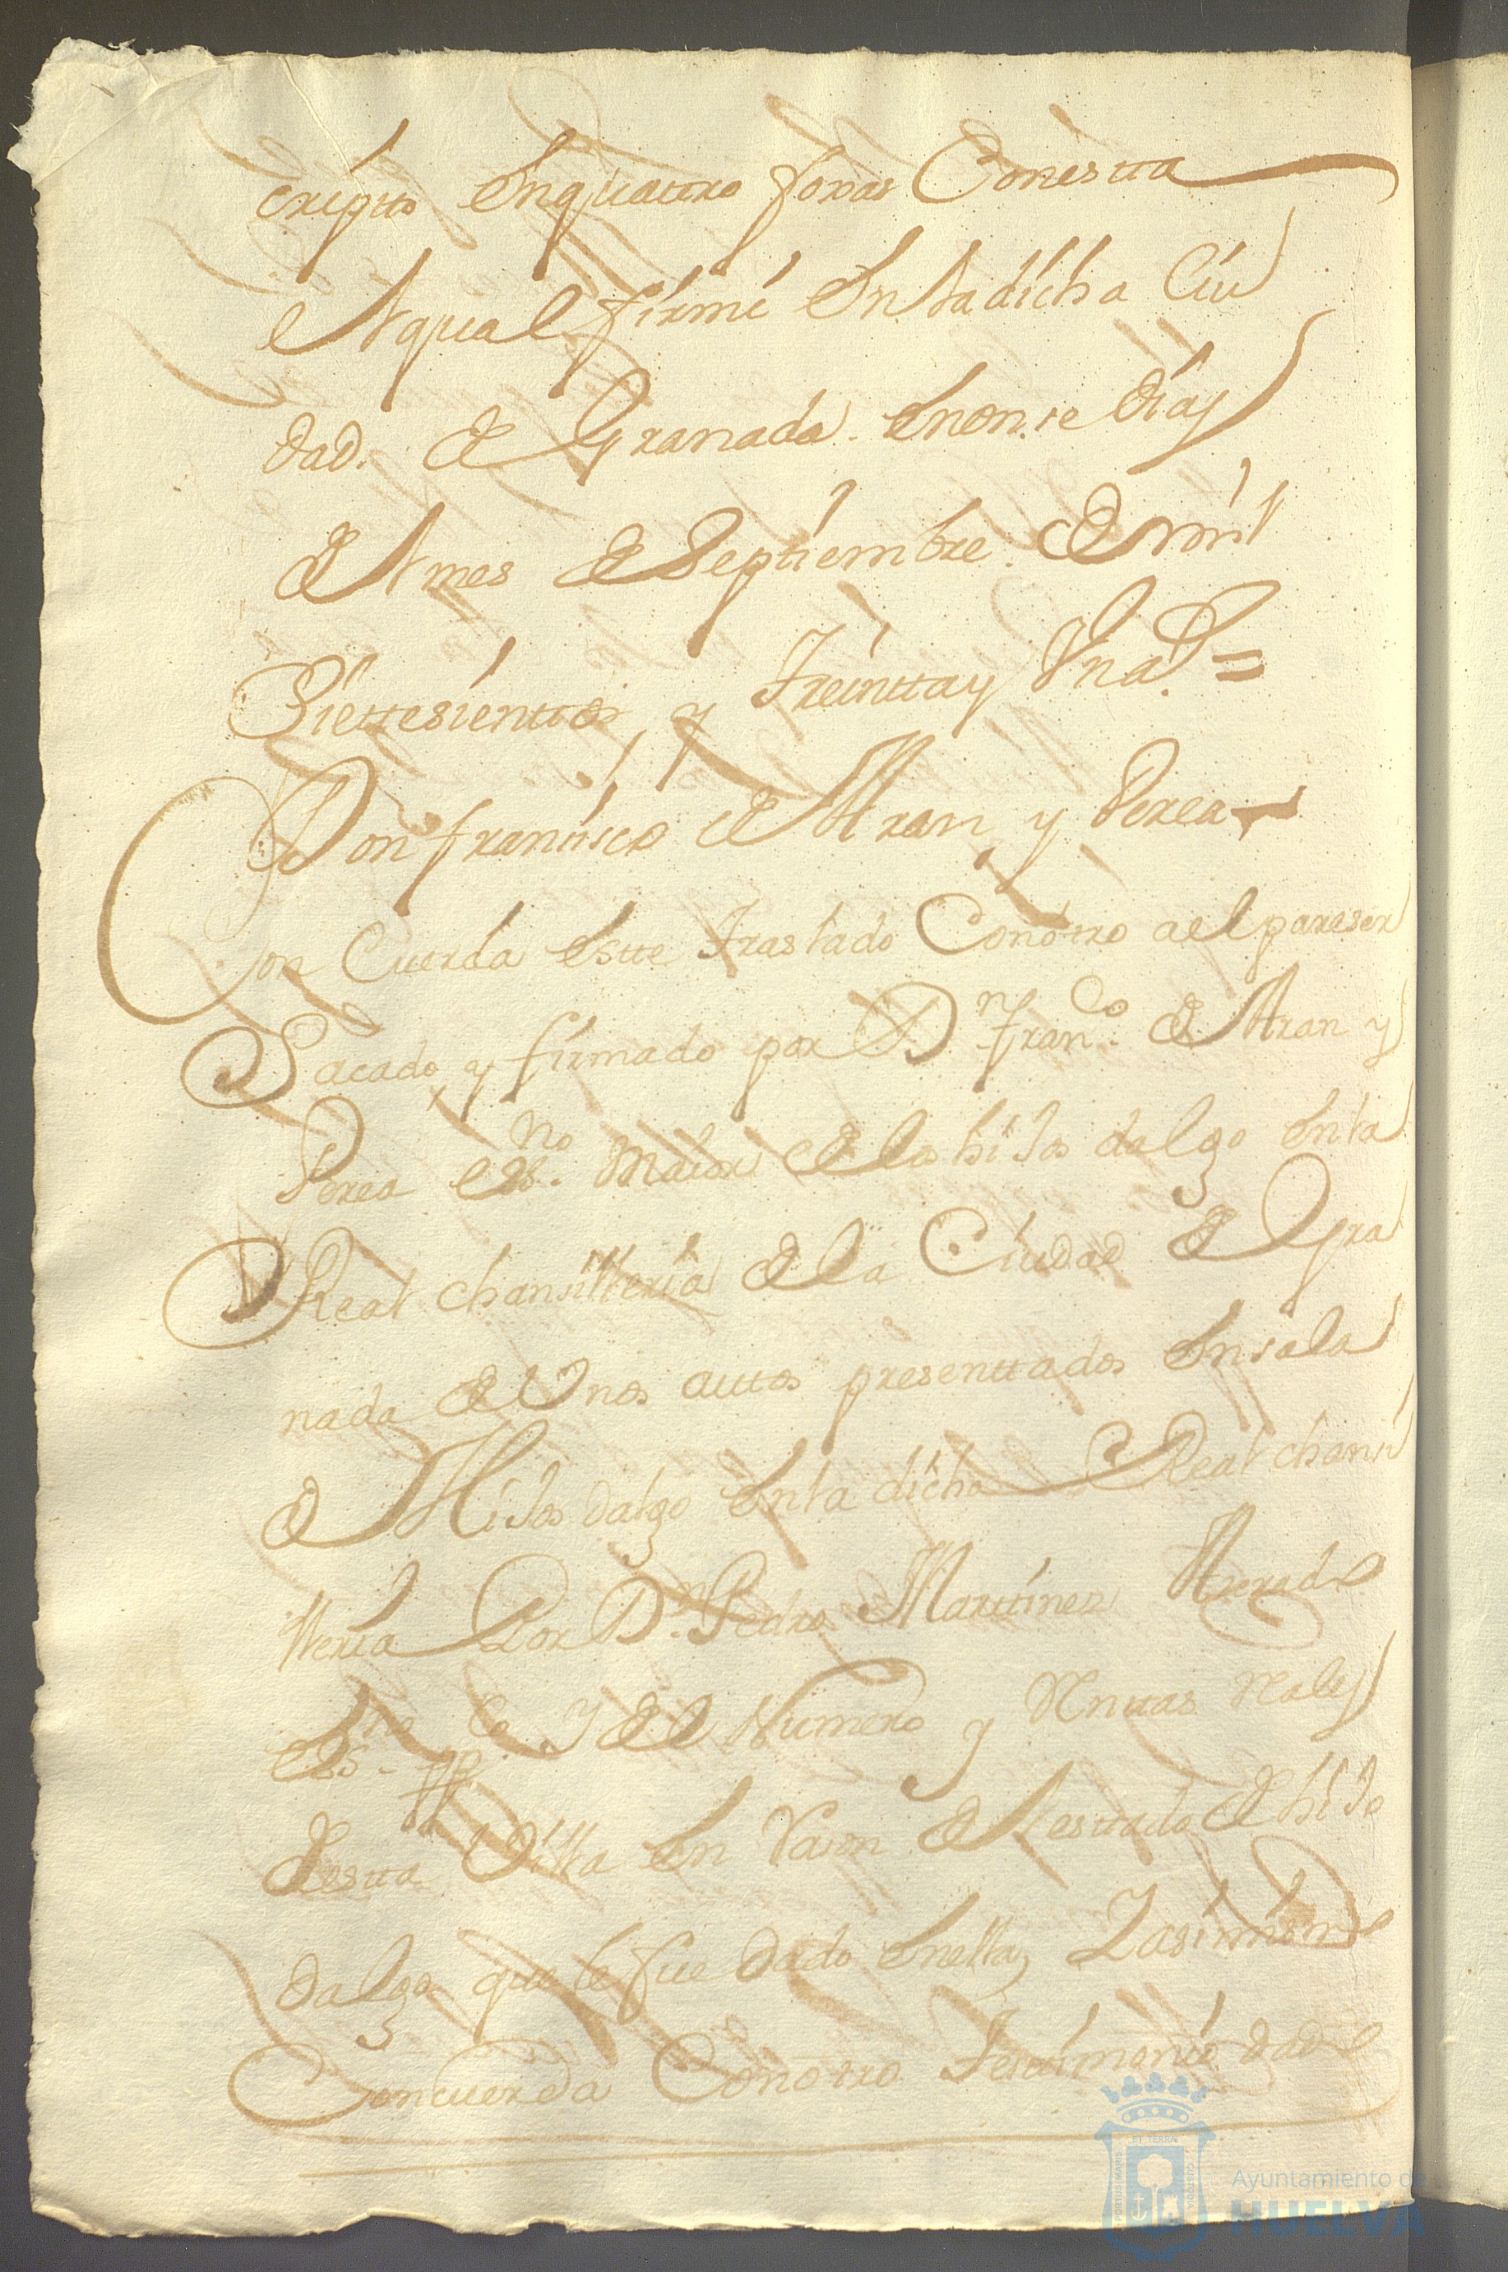 cripto en quatro foxas Con estta
el qual firmé En la dicha Ciu
dad. de Granada. en onse días
del mes de Septiembre. de mil
Siettesienttos, y Treintta y Una =
Don fransisco de Aran, y Perea
Con Cuerda estte traslado Con otro al pareser
Sacado, y firmado por Dn. franco. de Aran y
Perea Essno. maior de los hijos dalgo en la
Real chansilleria de la Ciudad de Gra
nada de Unos auttos presenttados en sala
de Hijos dalgo en la dicha Real chansi
lleria Por Dn. Pedro Martinez
Essno. ppco. Y del Numero y Renttas reales
desta Villa en rason del estado de hijo
dalgo que le fue dado en ella, Y asimismo
Concuerda Con otro Testimonio dado
Ayuntamiento de
HUELVA